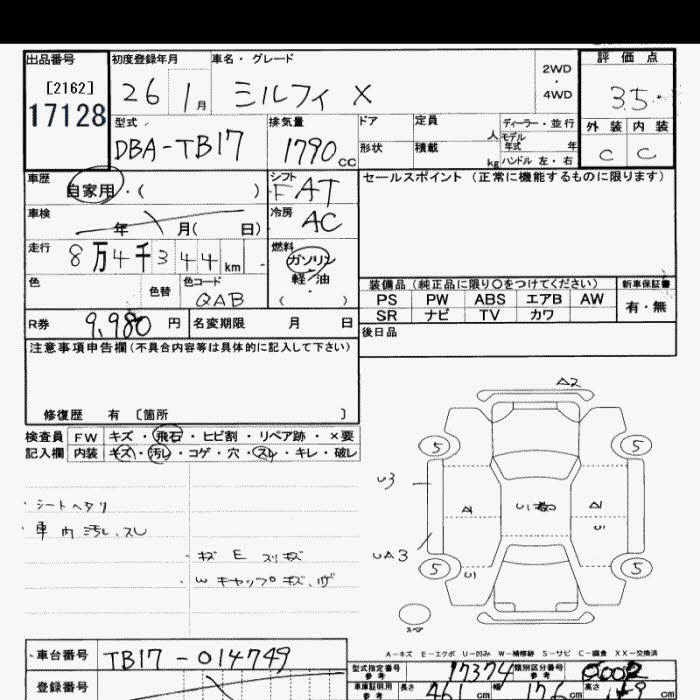 出品番号 初度登録年月 車名・グレード 2WD・4WD 評価点
[2162] 26 1月 ミルフィ X 3.5
17128
型式 排気量 ドア 定員 人 ディーラー・並行
DBA-TB17 1790cc 形状 積載 kg モデル年式 年
ハンドル 左・右
外装 内装
C C
車歴 自家用・( ) シフト FAT セールスポイント(正常に機能するものに限ります)
車検 年 月( 日) 冷房 AC
走行 8万4千344km 燃料 ガソリン
軽油
( )
色 色替 色コード QAB
装備品(純正品に限り○をつけてください) 新車保証書
PS PW ABS エアB AW 有・無
SR ナビ TV カワ
R券 9,980円 名変期限 月 日 後日品
注意事項申告欄(不具合内容等は具体的に記入して下さい)
修復歴 有 〔箇所 〕
検査員 FW キズ・飛石・ヒビ割・リペア跡・×要
記入欄 内装 キズ・汚レ・コゲ・穴・スレ・キレ・破レ
・シートヘタリ
・車内汚レ、スレ
・キズ E スリキズ
・W キャップキズ、
A2
5 5
U3
A U1 A
U
UA3
5 5
U
スペア
A-キズ E-エクボ U-凹み W-補修跡 S-サビ C-腐食 XX-交換済
車台番号 TB17-014749
登録番号
型式指定番号 参考 17374 類別区分番号 参考 0002
車庫証明用 参考 長さ 461cm 幅 176cm 高さ